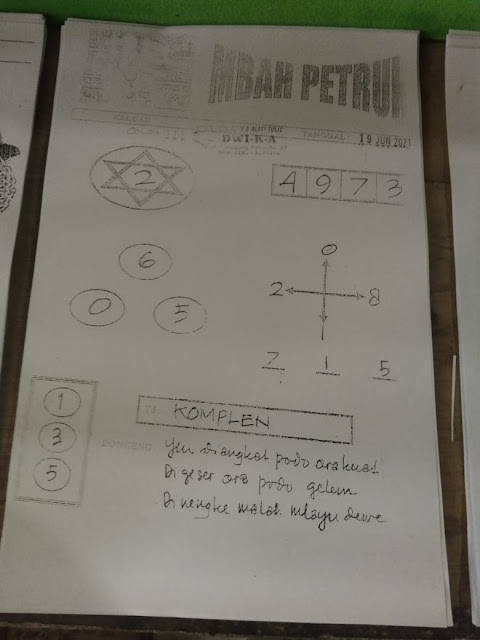 MBAH PETRUK
DWI-K-A
TANGGAL 19 JUN 2021
2
4 9 7 3
6
0 5
0
2 8
1
7 1 5
1
3
5
KOMPLEN
DONGENG: Yen diangkat podo ora kuat
Di geser ora podo gelem
Di nengke malah mlayu dewe